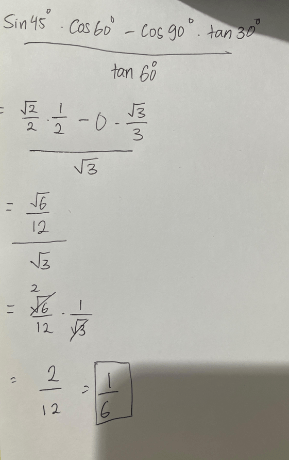 Sin 45° · Cos 60° - Cos 90° · tan 30°
tan 60°
= √2/2 · 1/2 - 0 · √3/3
√3
= √6/12
√3
2
= √6/12 · 1/√3
= 2/12 = 1/6